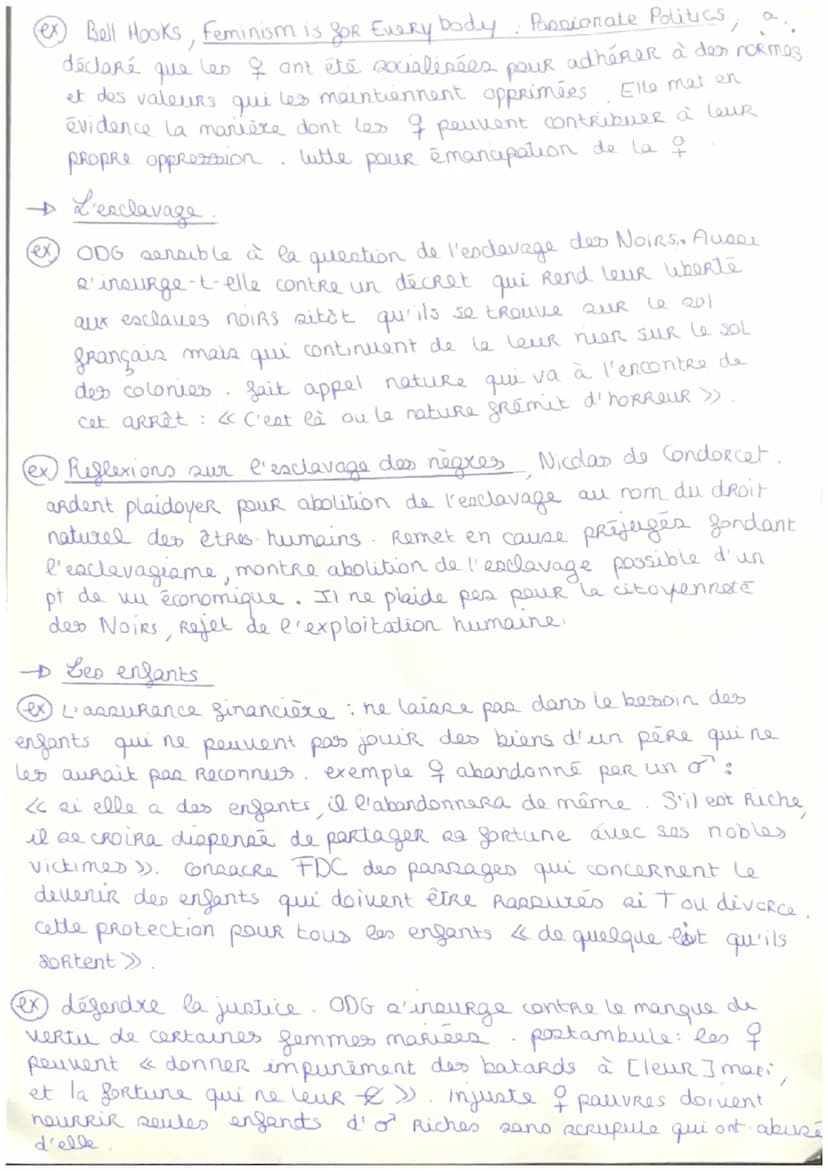 (ex) Bell Hooks, Feminism is for Everybody : Passionate Politics, a
déclaré que les ♀ ont été socialisées pour adhérer à des normes
et des valeurs qui les maintiennent opprimées. Elle met en
évidence la manière dont les ♀ peuvent contribuer à leur
propre oppression. lutte pour émancipation de la ♀
→ L'esclavage.
(ex) ODG sensible à la question de l'esclavage des Noirs. Aussi
s'insurge-t-elle contre un décret qui rend leur liberté
aux esclaves noirs sitôt qu'ils se trouve sur le sol
français mais qui continuent de la leur nier sur le sol
des colonies. fait appel nature qui va à l'encontre de
cet arrêt : « C'est là ou la nature frémit d'horreur ».
(ex) Réflexions sur l'esclavage des nègres, Nicolas de Condorcet.
ardent plaidoyer pour abolition de l'esclavage au nom du droit
naturel des êtres humains. Remet en cause préjugés fondant
l'esclavagisme, montre abolition de l'esclavage possible d'un
pt de vu économique. Il ne plaide pas pour la citoyenneté
des Noirs, Rejet de l'exploitation humaine.
→ Les enfants
(ex) L'assurance financière : ne laisse pas dans le besoin des
enfants qui ne peuvent pas jouir des biens d'un père qui ne
les aurait pas reconnus. exemple ♀ abandonné par un ♂ :
« si elle a des enfants, il l'abandonnera de même. S'il est riche,
il se croira dispensé de partager sa fortune avec ses nobles
victimes ». consacre FDC des passages qui concernent le
devenir des enfants qui doivent être rassurés si T ou divorce.
cette protection pour tous les enfants « de quelque lit qu'ils
sortent ».
(ex) défendre la justice. ODG s'insurge contre le manque de
vertu de certaines femmes mariées. postambule : les ♀
peuvent « donner impunément des batards à [leur] mari,
et la fortune qui ne leur ». injuste ♀ pauvres doivent
nourrir seules enfants d'♂ riches sans scrupule qui ont abusé
d'elle.